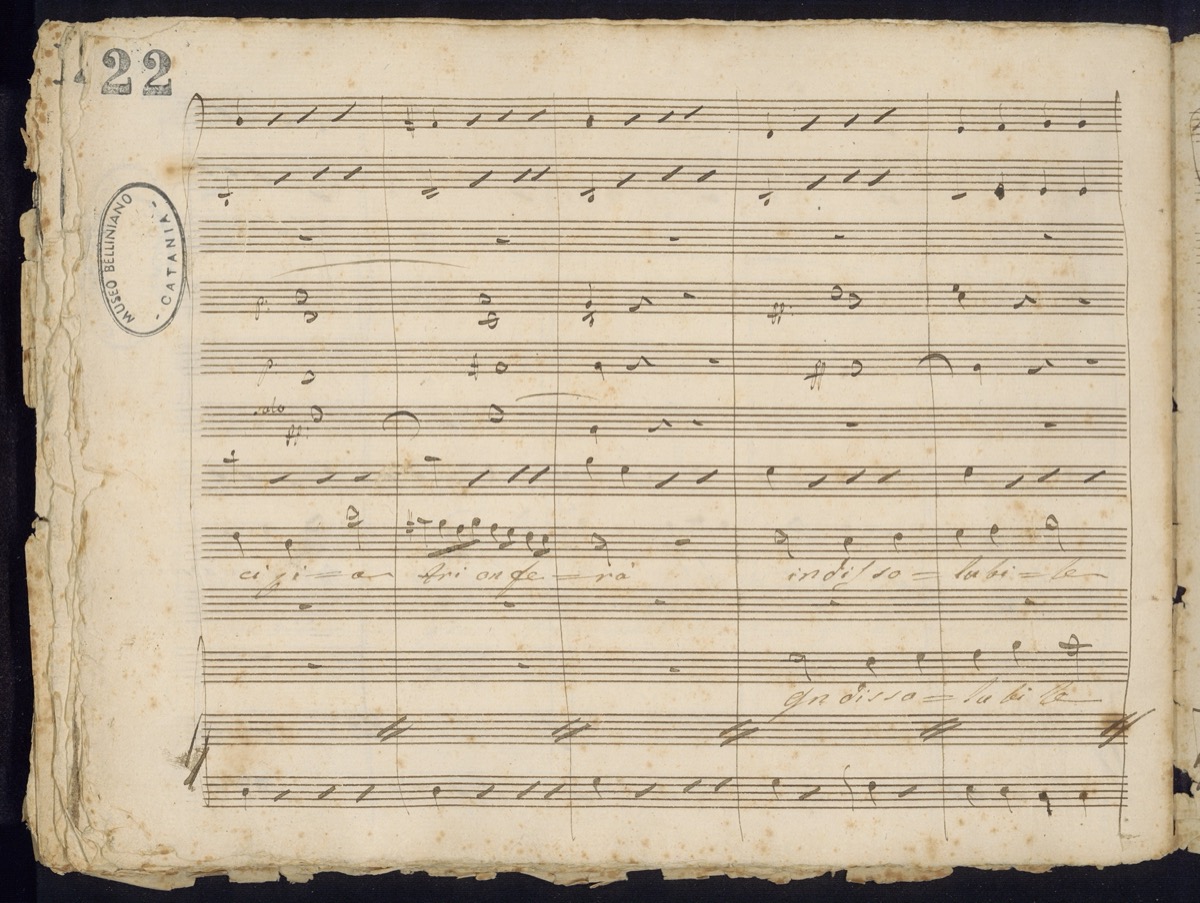 22
MUSEO BELLINIANO
- CATANIA -
p.
ff.
p.
ff
solo
ff.
ci pi = a trionfe = rà indisso = lubi = le
indisso = lu bi le